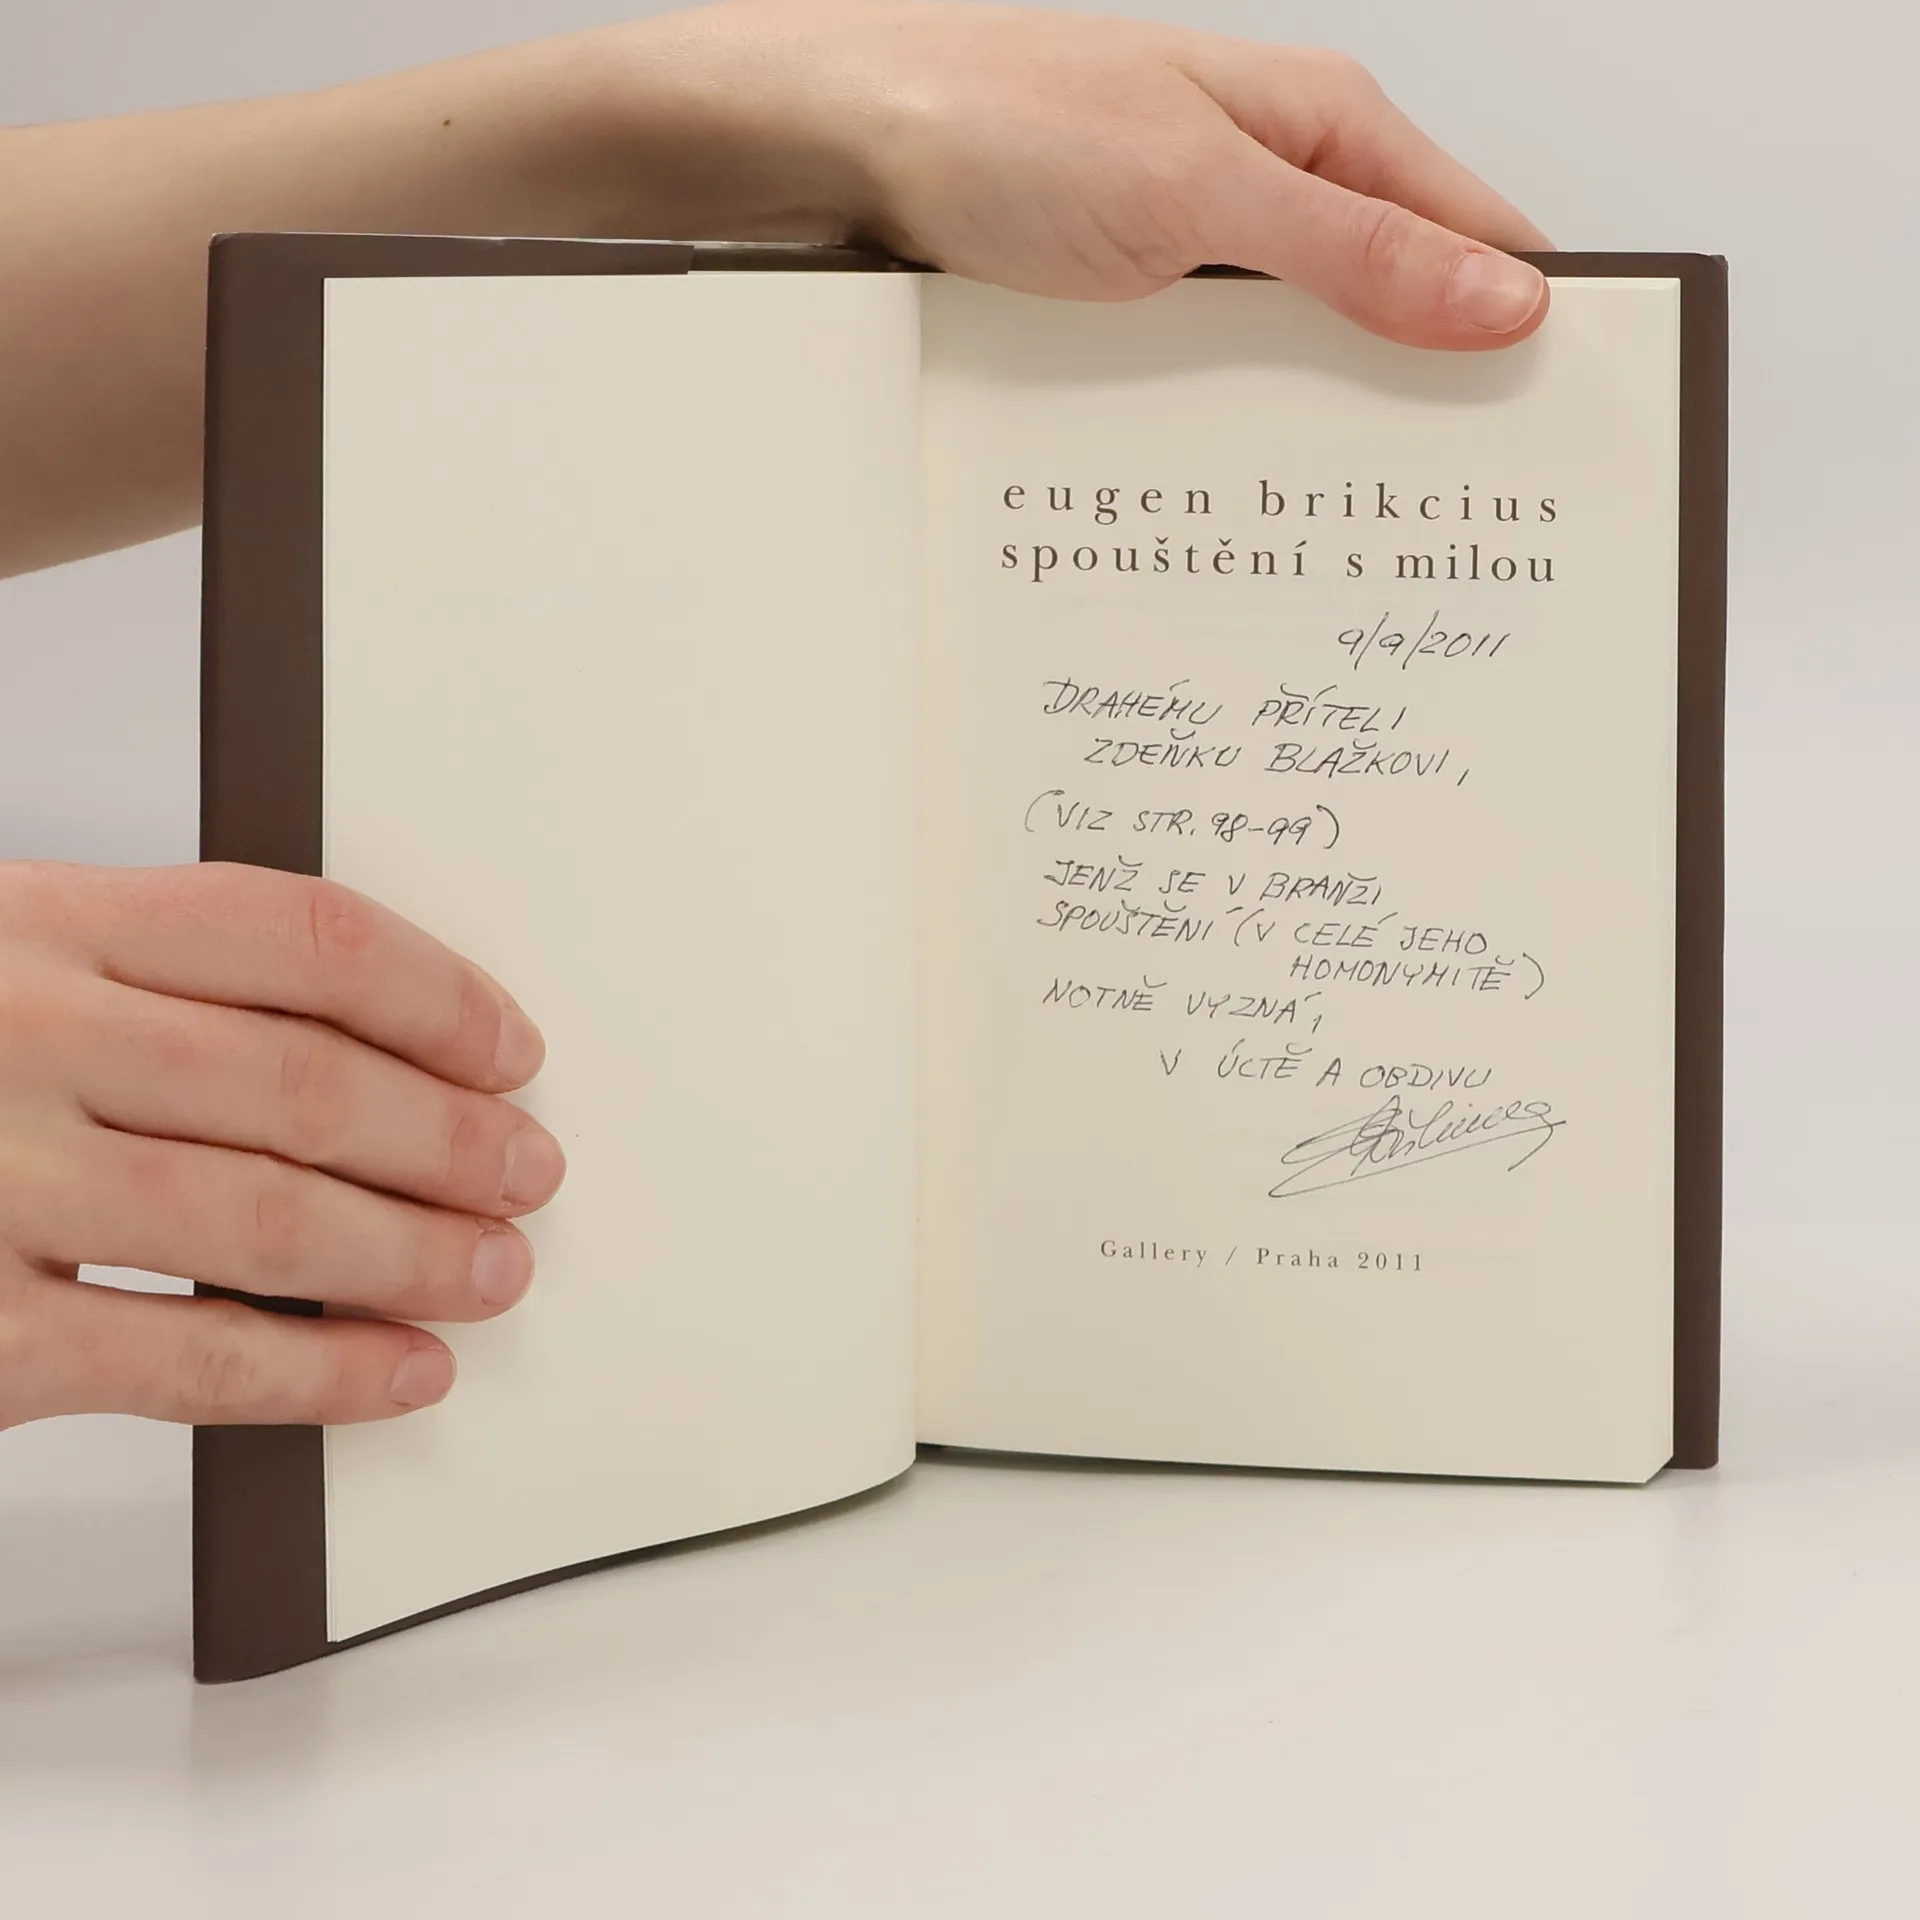 eugen brikcius
spouštění s milou
9/9/2011
DRAHÉMU PŘÍTELI
ZDEŇKU BLAŽKOVI,
(VIZ STR. 98-99)
JENŽ SE V BRANŽI
SPOUŠTĚNÍ (V CELÉ JEHO
HOMONYMITĚ)
NOTNĚ VYZNÁ,
V ÚCTĚ A OBDIVU
Gallery / Praha 2011